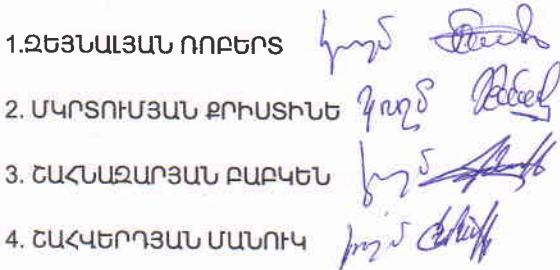 1.ԶԵՅՆԱԼՅԱՆ ՌՈԲԵՐՏ կողմ
2. ՄԿՐՏՈՒՄՅԱՆ ՔՐԻՍՏԻՆԵ կողմ
3. ՇԱՀՆԱԶԱՐՅԱՆ ԲԱԲԿԵՆ կողմ
4. ՇԱՀՎԵՐԴՅԱՆ ՄԱՆՈՒԿ կողմ